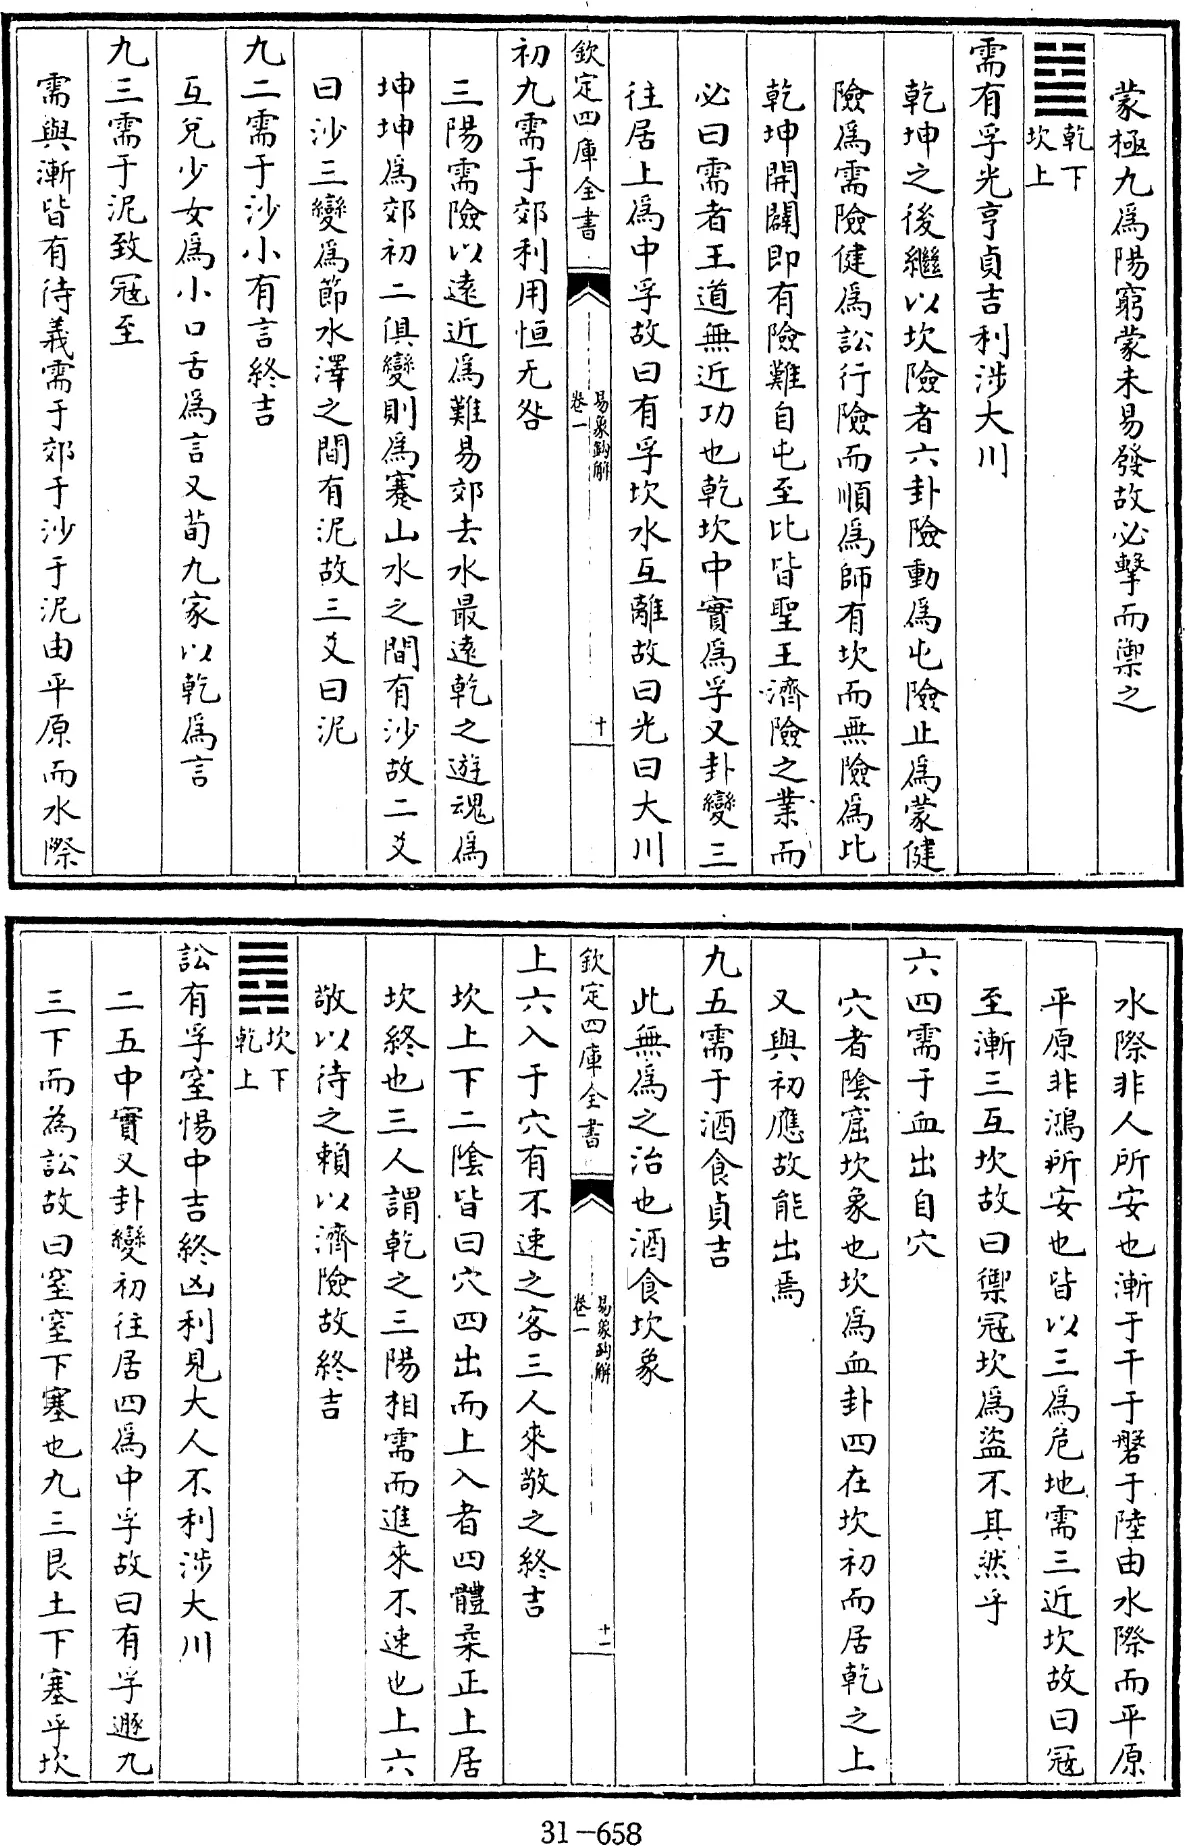 蒙極九爲陽窮蒙未易發故必擊而禦之
乾下
坎上
需有孚光亨貞吉利涉大川
乾坤之後繼以坎險者六卦險動爲屯險止爲蒙健
險爲需險健爲訟行險而順爲師有坎而無險爲比
乾坤開闢即有險難自屯至比皆聖王濟險之業而
必曰需者王道無近功也乾坎中實爲孚又卦變三
往居上爲中孚故曰有孚坎水互離故曰光曰大川
欽定四庫全書
易象鈎解
卷一
十
初九需于郊利用恒无咎
三陽需險以遠近爲難易郊去水最遠乾之遊魂爲
坤坤爲郊初二俱變則爲蹇山水之間有沙故二爻
曰沙三變爲節水澤之間有泥故三爻曰泥
九二需于沙小有言終吉
互兌少女爲小口舌爲言又荀九家以乾爲言
九三需于泥致冦至
需與漸皆有待義需于郊于沙于泥由平原而水際
水際非人所安也漸于干于磐于陸由水際而平原
平原非鴻所安也皆以三爲危地需三近坎故曰冦
至漸三互坎故曰禦冦坎爲盜不其然乎
六四需于血出自穴
穴者陰窟坎象也坎爲血卦四在坎初而居乾之上
又與初應故能出焉
九五需于酒食貞吉
此無爲之治也酒食坎象
欽定四庫全書
易象鈎解
卷一
十一
上六入于穴有不速之客三人來敬之終吉
坎上下二陰皆曰穴四出而上入者四體柔正上居
坎終也三人謂乾之三陽相需而進來不速也上六
敬以待之賴以濟險故終吉
坎下
乾上
訟有孚窒惕中吉終凶利見大人不利涉大川
二五中實又卦變初往居四爲中孚故曰有孚遯九
三下而為訟故曰窒窒下塞也九三艮土下塞乎坎
31-658